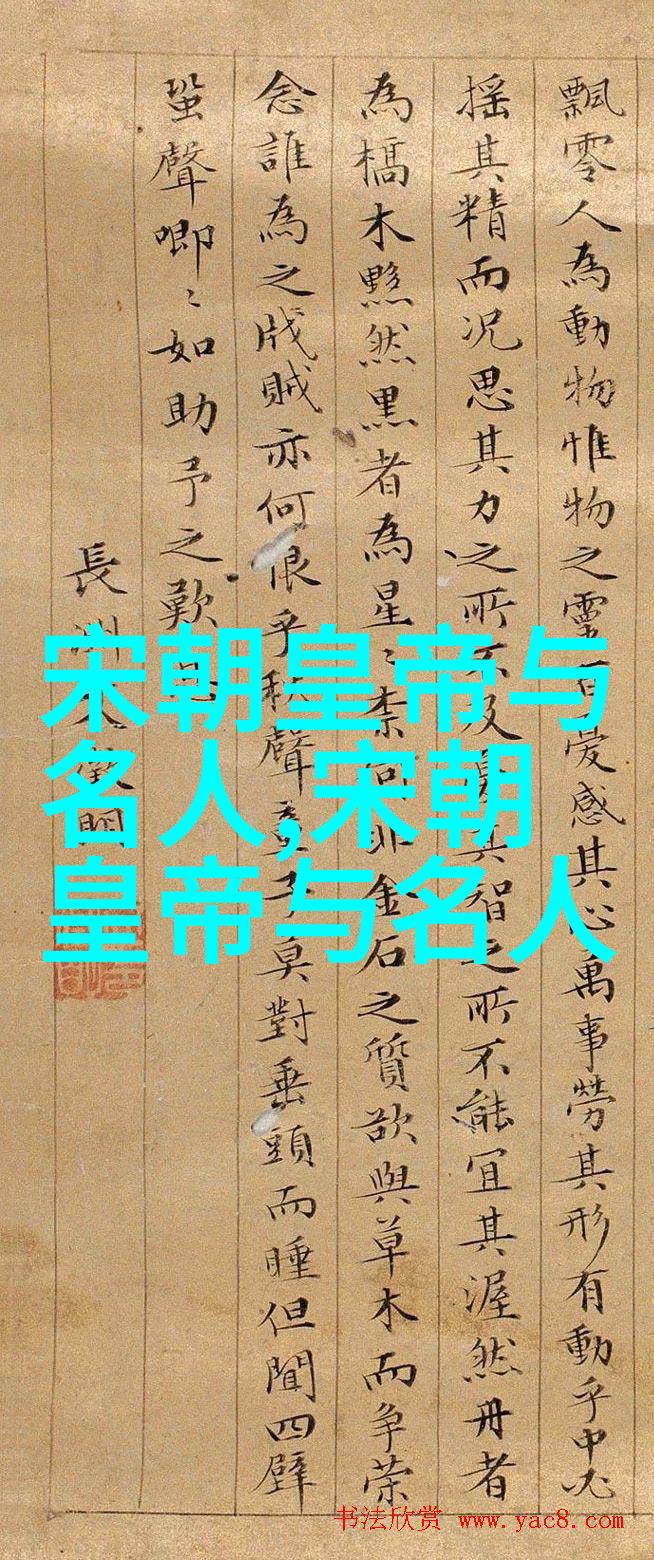 飄零人為動物惟物之靈百憂感其心萬事勞其形有動乎中必
搖其精而况思其力之所不及憂其智之所不能宜其渥然丹者
為槁木黟然黒者為星〻柰何非金石之質欲與草木而爭荣
念誰為之戕賊亦何恨乎秋聲童子莫對垂頭而睡但聞四壁
蛩聲唧〻如助予之歎息
長洲文徵明
宋朝皇帝与
名人,宋朝
皇帝与名人
书法欣赏 www.yac8.com